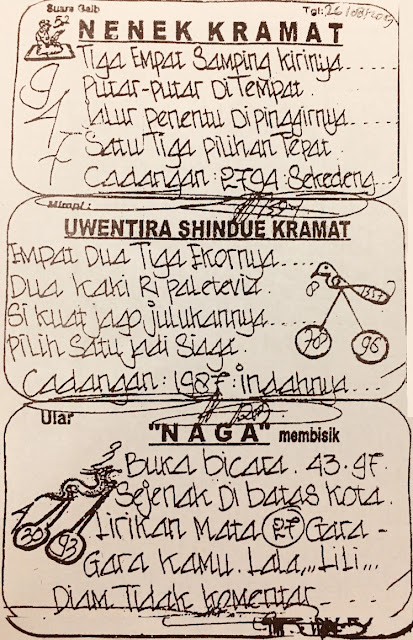 Suara Gaib
Tgl: 26/08/2019
52
NENEK KRAMAT
947
Tiga Empat Samping kirinya.....
Putar-putar Di Tempat.
Jalur penentu Dipinggirnya....
Satu Tiga pilihan Tepat.
Cadangan: 2794: Sekedeng....
Mimpi:
UWENTIRA SHINDUE KRAMAT
Empat Dua Tiga Ekornya.....
Dua kaki Ri paletevia.
Si kuat jago julukannya.....
Pilih Satu jadi Siaga.
8
1357
70
96
Cadangan: 1987: indahnya....
Ular
"NAGA" membisik
Buka bicara. 43.97.
Sejenak Di batas kota.
Lirikan Mata 27 Gara-
Gara kamu. Lala,,, Lili,,,
Diam Tidak komentar-
30
93